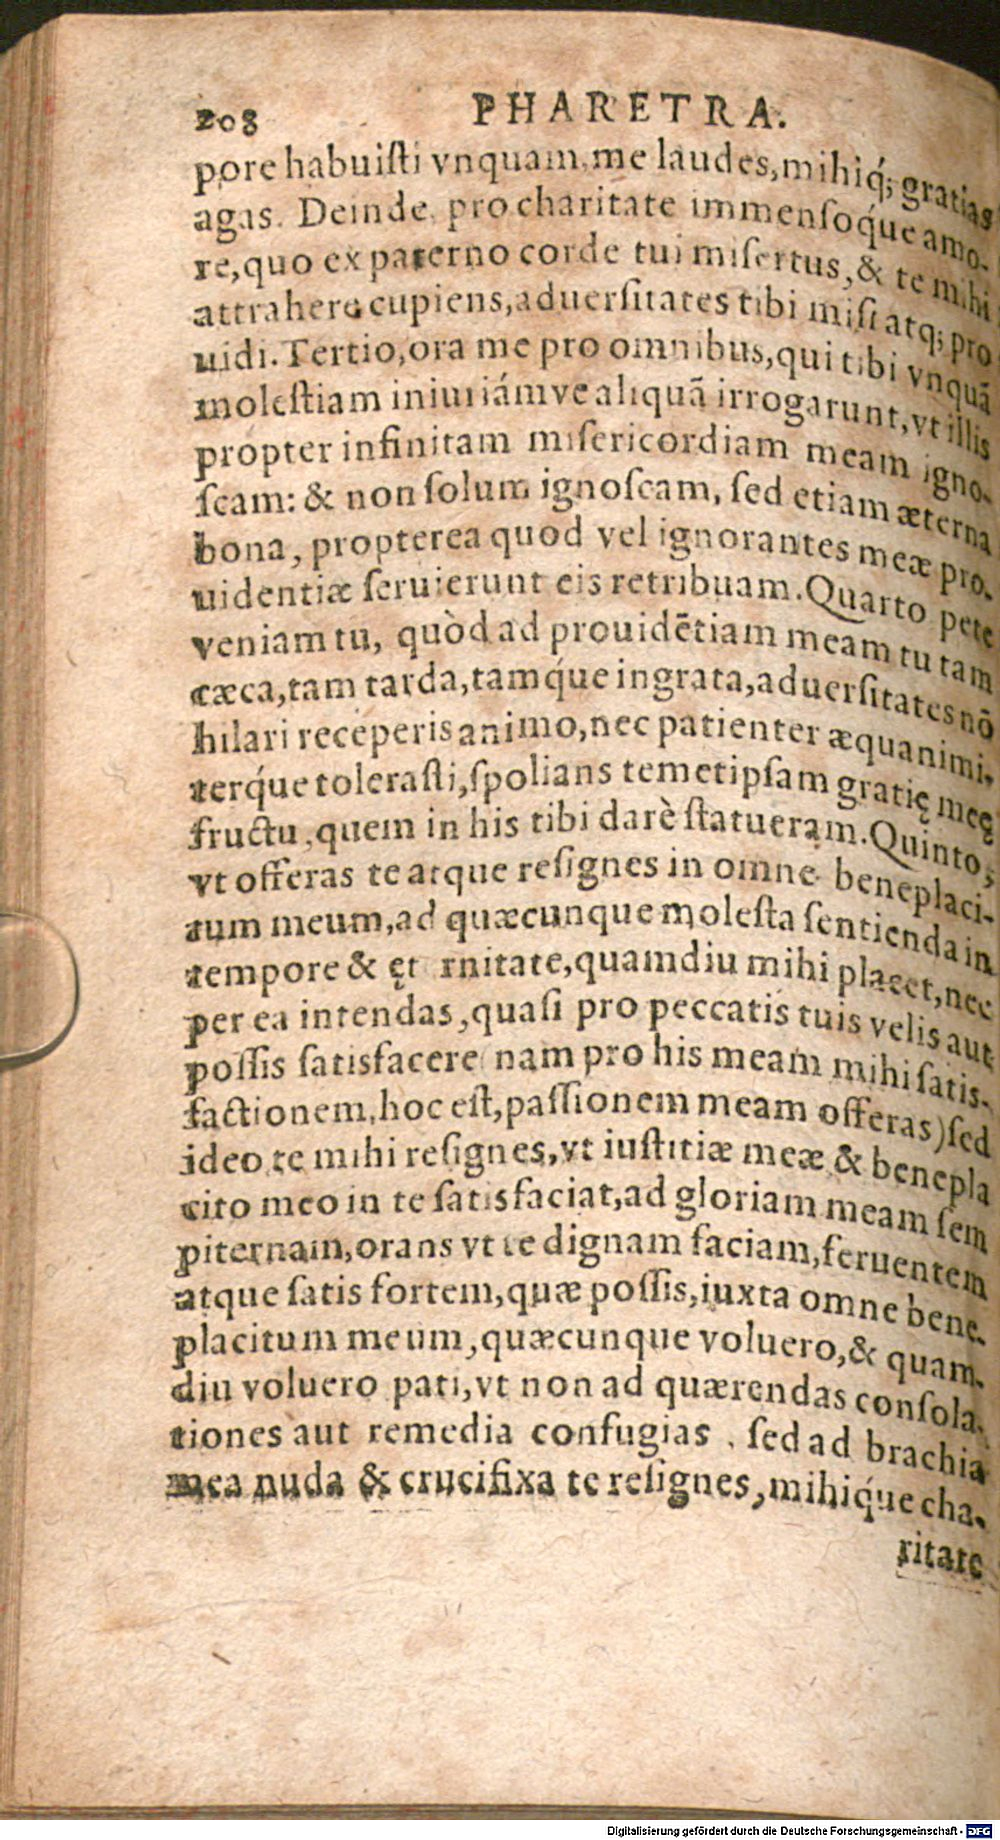 208 PHARETRA.
pore habuiſti vnquam, me laudes, mihiq́; gratias
agas. Deinde, pro charitate immenſoq́ue amo-
re, quo ex paterno corde tui miſertus, & te mihi
attrahere cupiens, aduerſitates tibi miſi atq; pro
uidi. Tertio, ora me pro omnibus, qui tibi vnquã
moleſtiam iniuriámve aliquã irrogarunt, vt illis
propter infinitam miſericordiam meam igno-
ſcam: & non ſolum ignoſcam, ſed etiam æterna
bona, propterea quod vel ignorantes meæ pro-
uidentiæ ſeruierunt eis retribuam. Quarto pete
veniam tu, quòd ad prouidẽtiam meam tu tam
cæca, tam tarda, tamq́ue ingrata, aduerſitates nõ
hilari receperis animo, nec patienter æquanimi-
terq́ue toleraſti, ſpolians temetipſam gratię meę
fructu, quem in his tibi darè ſtatueram. Quinto,
vt offeras te atque reſignes in omne beneplaci-
tum meum, ad quæcunque moleſta ſentienda in
tempore & ęt rnitate, quamdiu mihi placet, nec
per ea intendas, quaſi pro peccatis tuis velis aut
poſſis ſatisfacere nam pro his meam mihi ſatis-
factionem, hoc eſt, paſſionem meam offeras) ſed
ideo te mihi reſignes, vt iuſtitiæ meæ & benepla
cito meo in te ſatisfaciat, ad gloriam meam ſem
piternam, orans vt te dignam faciam, feruentem
atque ſatis fortem, quæ poſſis, iuxta omne bene-
placitum meum, quæcunque voluero, & quam-
diu voluero pati, vt non ad quærendas conſola-
tiones aut remedia confugias, ſed ad brachia
mea nuda & crucifixa te reſignes, mihiq́ue cha-
ritate
Digitalisierung gefördert durch die Deutsche Forschungsgemeinschaft - DFG